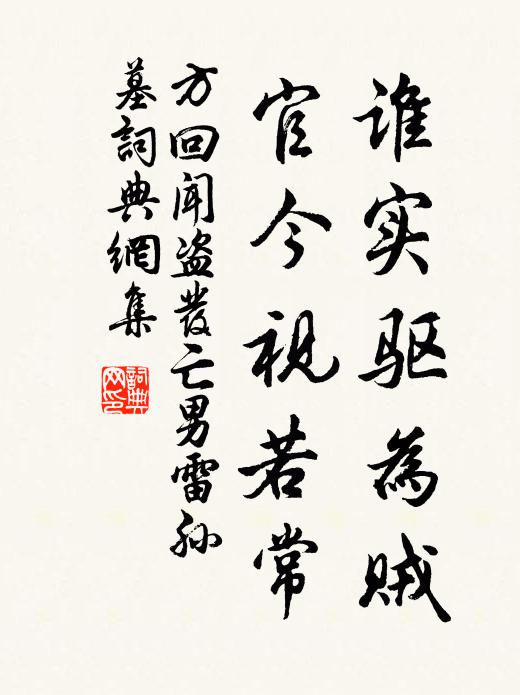 谁实驱為贼
官今視若常
方回闻盗發亡男雷孙
墓詞典網集
詞典网印